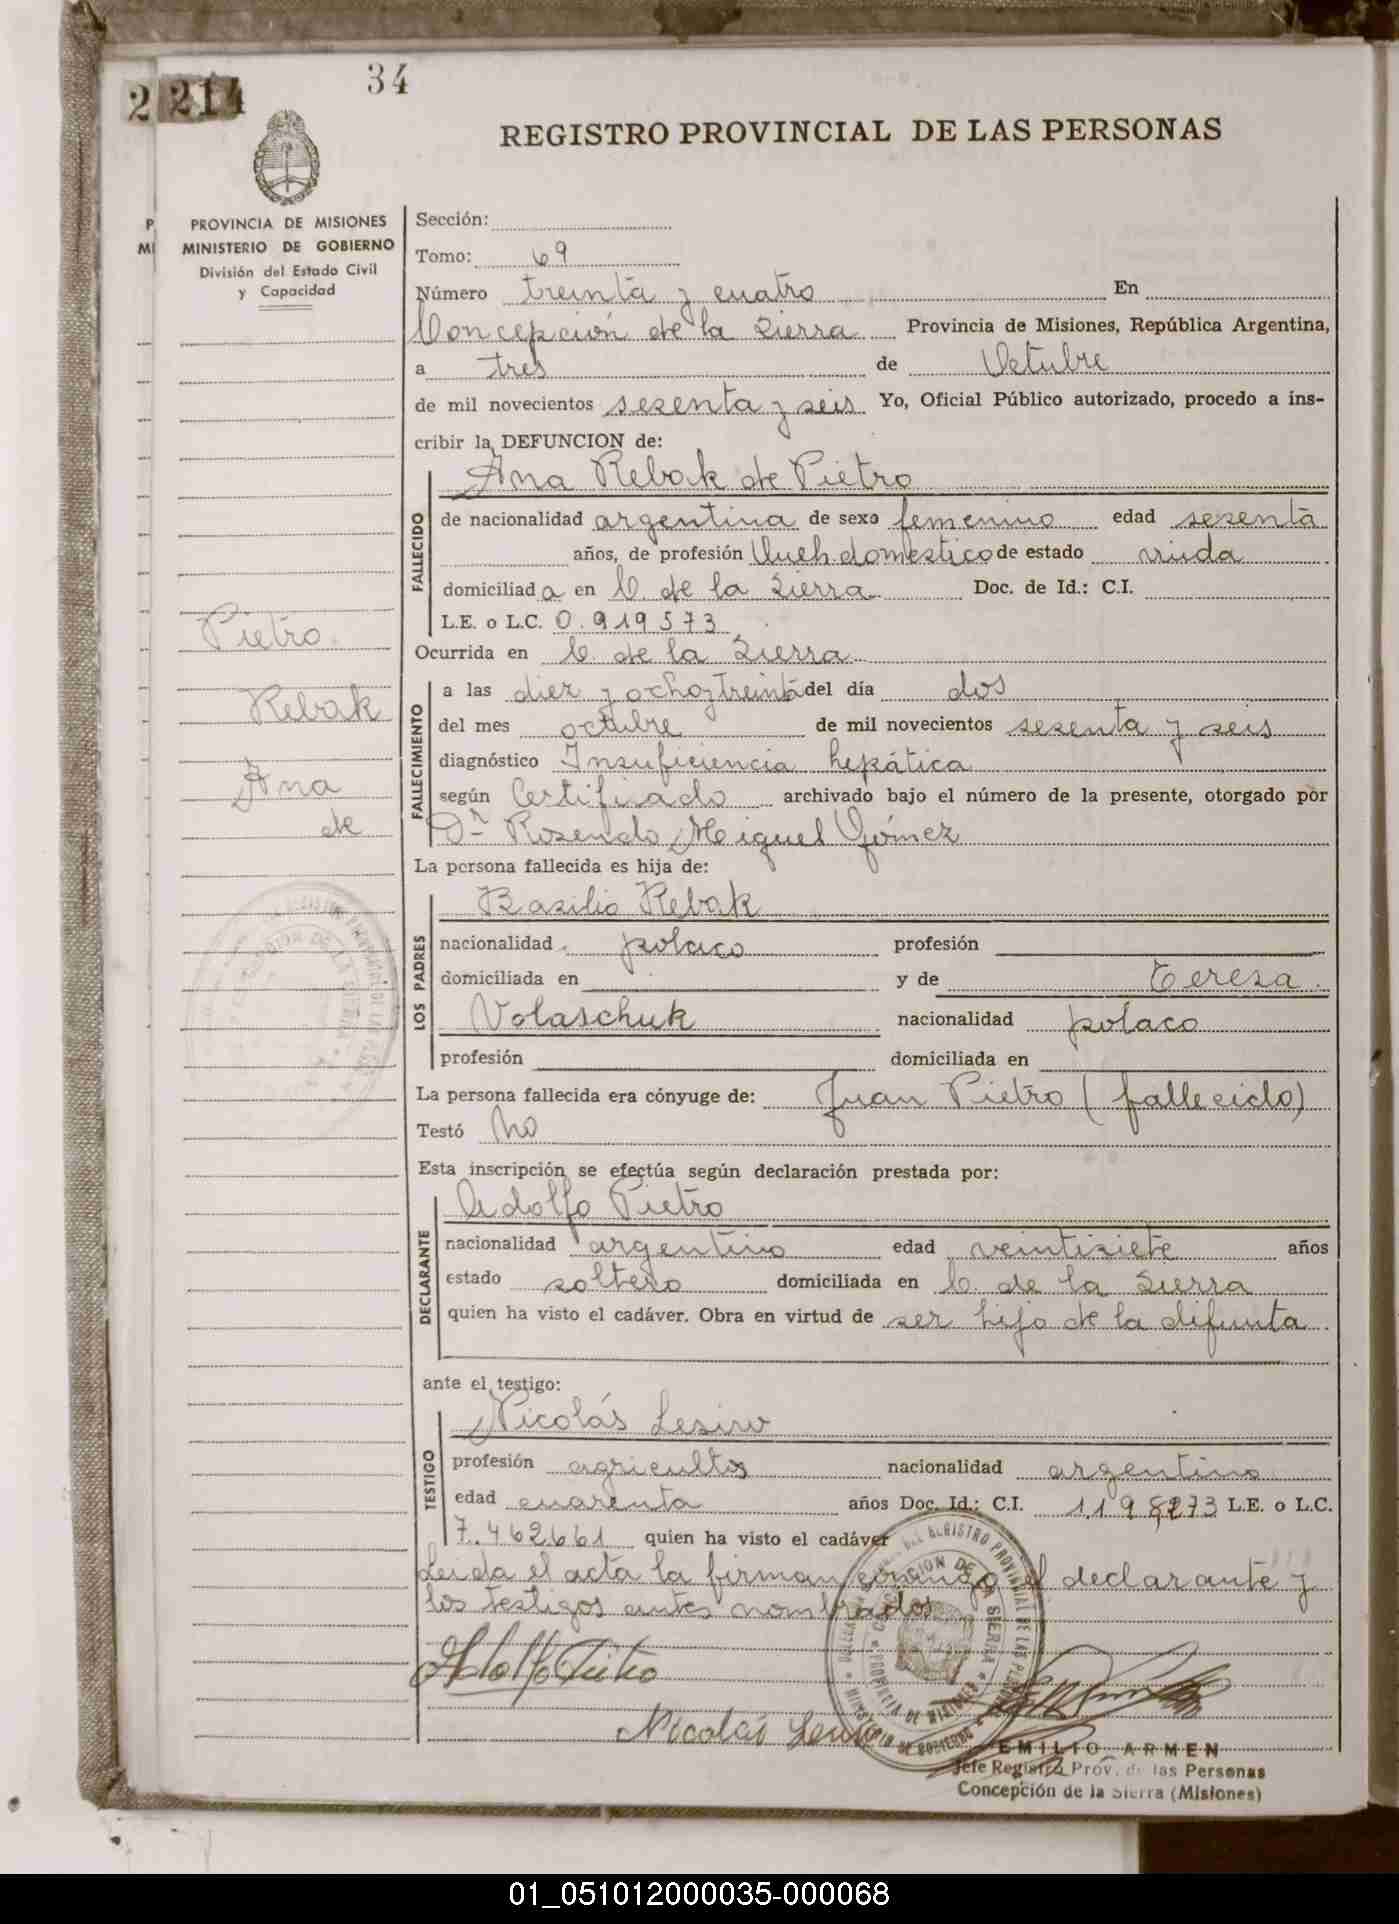 34
2 214
REGISTRO PROVINCIAL DE LAS PERSONAS
P PROVINCIA DE MISIONES
MI MINISTERIO DE GOBIERNO
División del Estado Civil
y Capacidad
Pietro
Rebak
Ana
de
Sección:
Tomo: 69
Número treinta y cuatro En
Concepción de la Sierra Provincia de Misiones, República Argentina,
a tres de Octubre
de mil novecientos sesenta y seis Yo, Oficial Público autorizado, procedo a ins-
cribir la DEFUNCION de:
Ana Rebak de Pietro
FALLECIDO
de nacionalidad argentina de sexo femenino edad sesenta
años, de profesión Queh. domestico de estado viuda
domiciliada en C. de la Sierra Doc. de Id.: C.I.
L.E. o L.C. 0.919573
Ocurrida en C. de la Sierra
FALLECIMIENTO
a las diez y ocho y treinta del día dos
del mes octubre de mil novecientos sesenta y seis
diagnóstico Insuficiencia hepática
según Certificado archivado bajo el número de la presente, otorgado por
Dr Rosendo Miguel Gómez
La persona fallecida es hija de:
LOS PADRES
Basilio Rebak
nacionalidad polaco profesión
domiciliada en y de Teresa
Volaschuk nacionalidad polaco
profesión domiciliada en
La persona fallecida era cónyuge de: Juan Pietro (fallecido)
Testó No
Esta inscripción se efectúa según declaración prestada por:
DECLARANTE
Adolfo Pietro
nacionalidad argentino edad veintisiete años
estado soltero domiciliada en C. de la Sierra
quien ha visto el cadáver. Obra en virtud de ser hijo de la difunta
ante el testigo:
TESTIGO
Nicolás Lesiw
profesión agricultor nacionalidad argentino
edad cuarenta años Doc. Id.: C.I. L.E. o L.C.
7.462661 quien ha visto el cadáver
Leida el acta la firman conmigo el declarante y
los testigos antes nombrados
Adolfo Pietro
Nicolás
EMILIO ARMEN
Jefe Registro Prov. de las Personas
Concepción de la Sierra (Misiones)
01_051012000035-000068